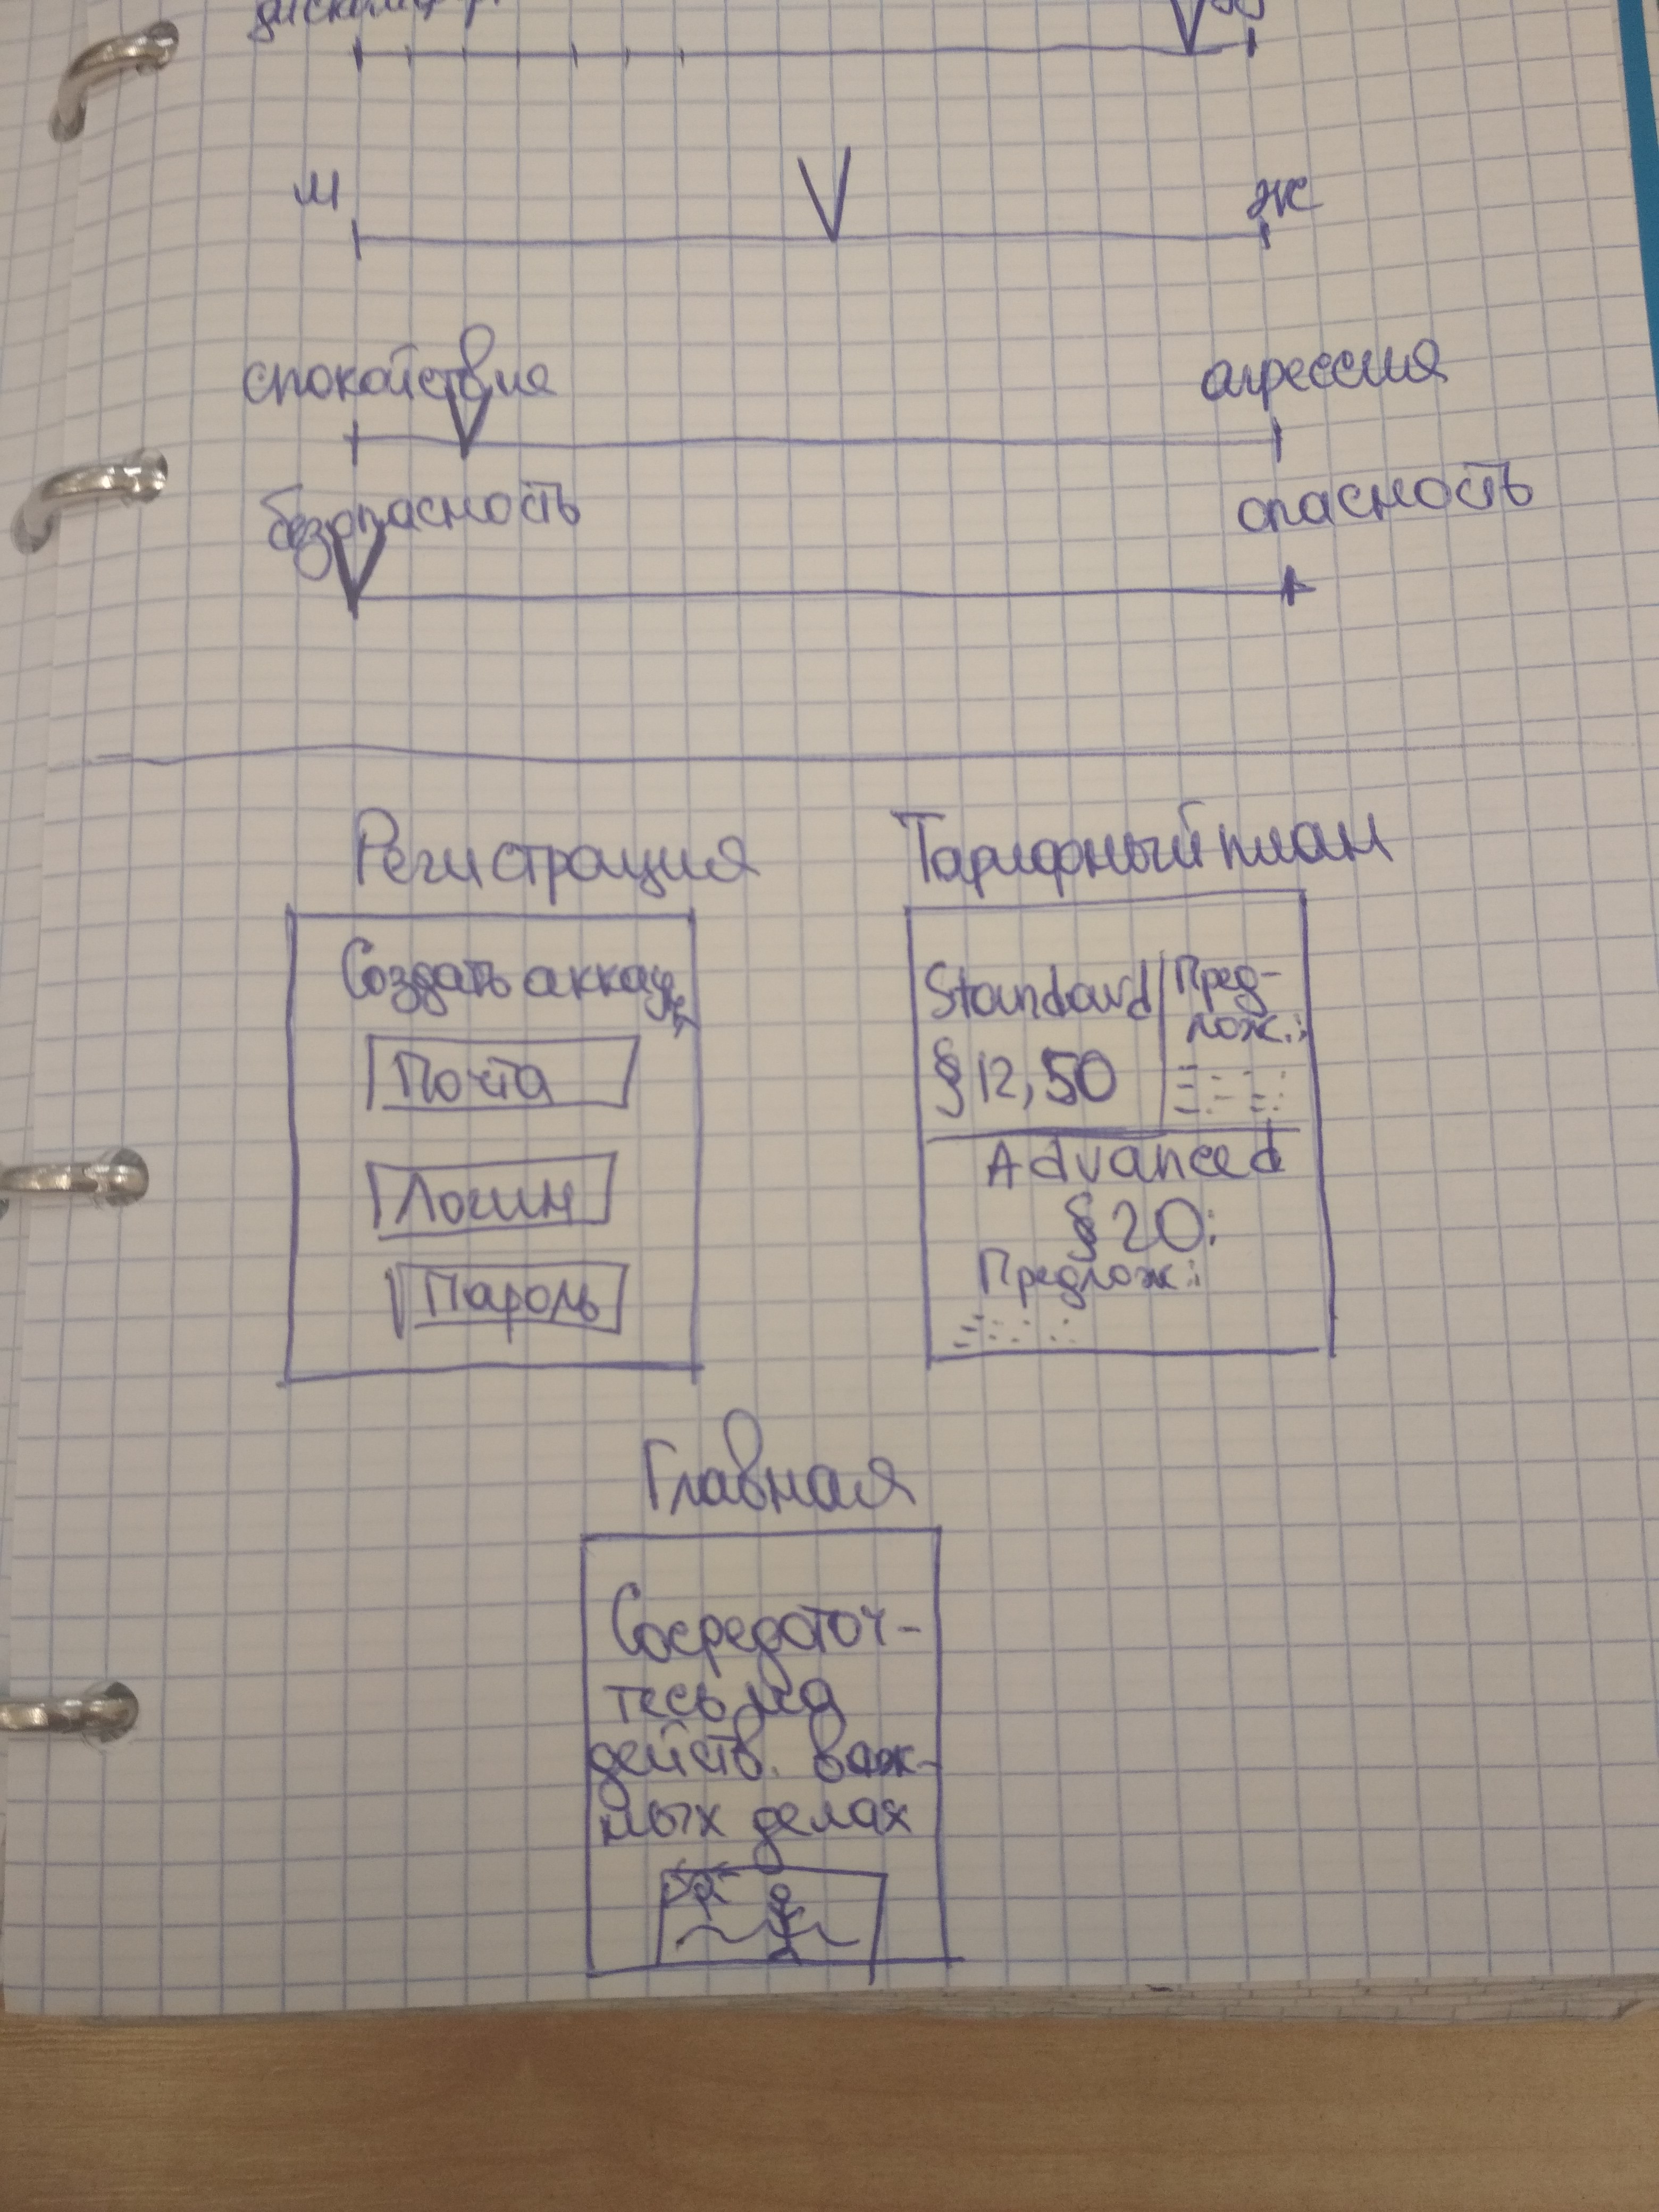 М Ж
спокойствие агрессия
безопасность опасность
Регистрация Тарифный план
Создать аккаунт
Почта
Логин
Пароль
Standard
§ 12,50
Пред-
лож.:
Advanced
§ 20:
Предлож.:
Главная
Сосредоточ-
тесь на
действ. важ-
ных делах